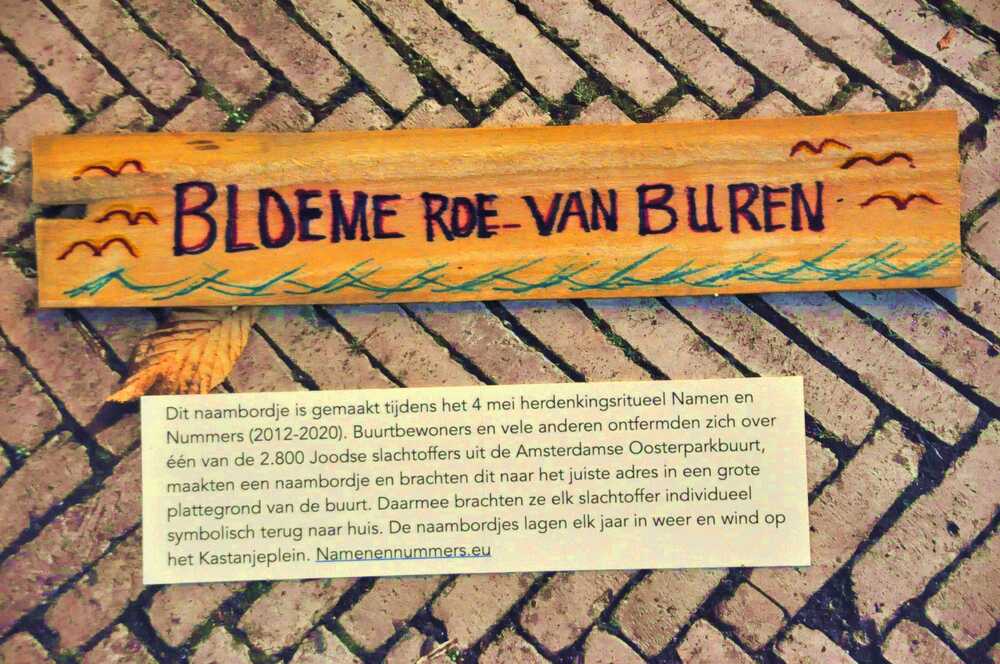 BLOEME ROE-VAN BUREN
Dit naambordje is gemaakt tijdens het 4 mei herdenkingsritueel Namen en
Nummers (2012-2020). Buurtbewoners en vele anderen ontfermden zich over
één van de 2.800 Joodse slachtoffers uit de Amsterdamse Oosterparkbuurt,
maakten een naambordje en brachten dit naar het juiste adres in een grote
plattegrond van de buurt. Daarmee brachten ze elk slachtoffer individueel
symbolisch terug naar huis. De naambordjes lagen elk jaar in weer en wind op
het Kastanjeplein. Namenennummers.eu